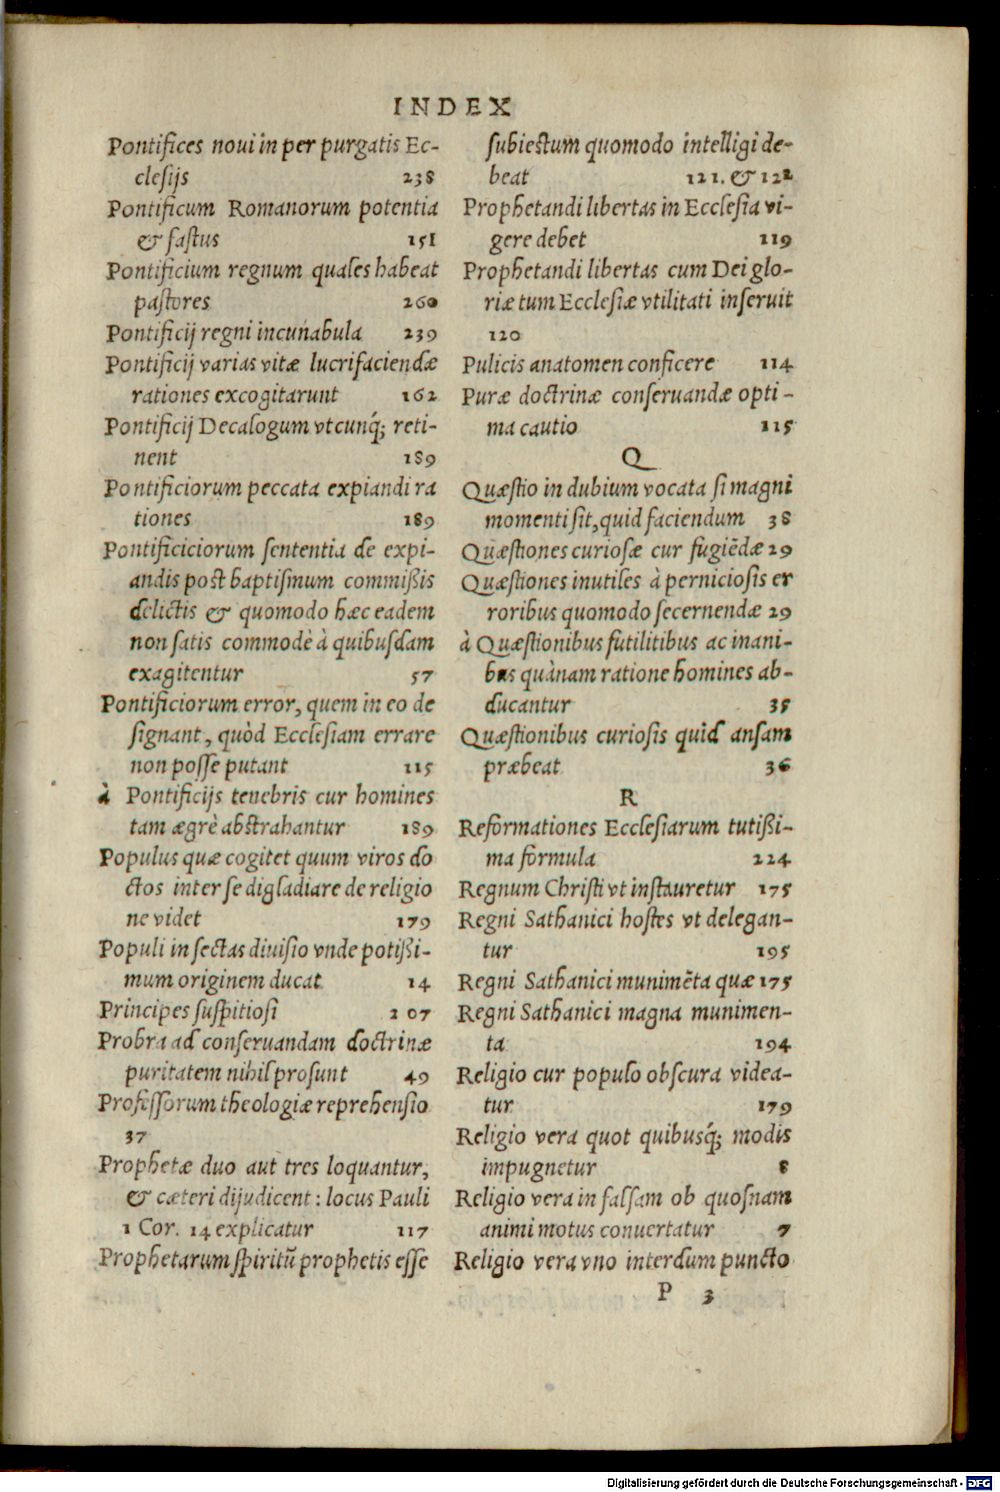 INDEX
Pontifices noui in per purgatis Ec-
clesijs 238
Pontificum Romanorum potentia
& fastus 151
Pontificium regnum quales habeat
pastores 260
Pontificij regni incunabula 239
Pontificij varias vitæ lucrifaciendæ
rationes excogitarunt 162
Pontificij Decalogum vtcunq́; reti-
nent 189
Pontificiorum peccata expiandi ra
tiones 189
Pontificiciorum sententia de expi-
andis post baptismum commißis
delictis & quomodo hæc eadem
non satis commodè à quibusdam
exagitentur 57
Pontificiorum error, quem in eo de
signant, quòd Ecclesiam errare
non posse putant 115
à Pontificijs tenebris cur homines
tam ægrè abstrahantur 189
Populus quæ cogitet quum viros do
ctos inter se digladiare de religio
ne videt 179
Populi in sectas diuisio vnde potißi-
mum originem ducat 14
Principes suspitiosi 207
Probra ad conseruandam doctrinæ
puritatem nihil prosunt 49
Professorum theologiæ reprehensio
37
Prophetæ duo aut tres loquantur,
& cæteri dijudicent: locus Pauli
1 Cor. 14 explicatur 117
Prophetarum spiritũ prophetis esse
subiectum quomodo intelligi de-
beat 121. & 122
Prophetandi libertas in Ecclesia vi-
gere debet 119
Prophetandi libertas cum Dei glo-
riæ tum Ecclesiæ vtilitati inseruit
120
Pulicis anatomen conficere 114
Puræ doctrinæ conseruandæ opti-
ma cautio 115
Q
Quæstio in dubium vocata si magni
momenti sit, quid faciendum 38
Quæstiones curiosæ cur fugiẽdæ 29
Quæstiones inutiles à perniciosis er
roribus quomodo secernendæ 29
à Quæstionibus futilitibus ac inani-
bus quànam ratione homines ab-
ducantur 35
Quæstionibus curiosis quid ansam
præbeat 36
R
Reformationes Ecclesiarum tutißi-
ma formula 224
Regnum Christi vt instauretur 175
Regni Sathanici hostes vt delegan-
tur 195
Regni Sathanici munimẽta quæ 175
Regni Sathanici magna munimen-
ta 194
Religio cur populo obscura videa-
tur 179
Religio vera quot quibusq́; modis
impugnetur 8
Religio vera in falsam ob quosnam
animi motus conuertatur 7
Religio vera vno interdum puncto
P 3
Digitalisierung gefördert durch die Deutsche Forschungsgemeinschaft - DFG